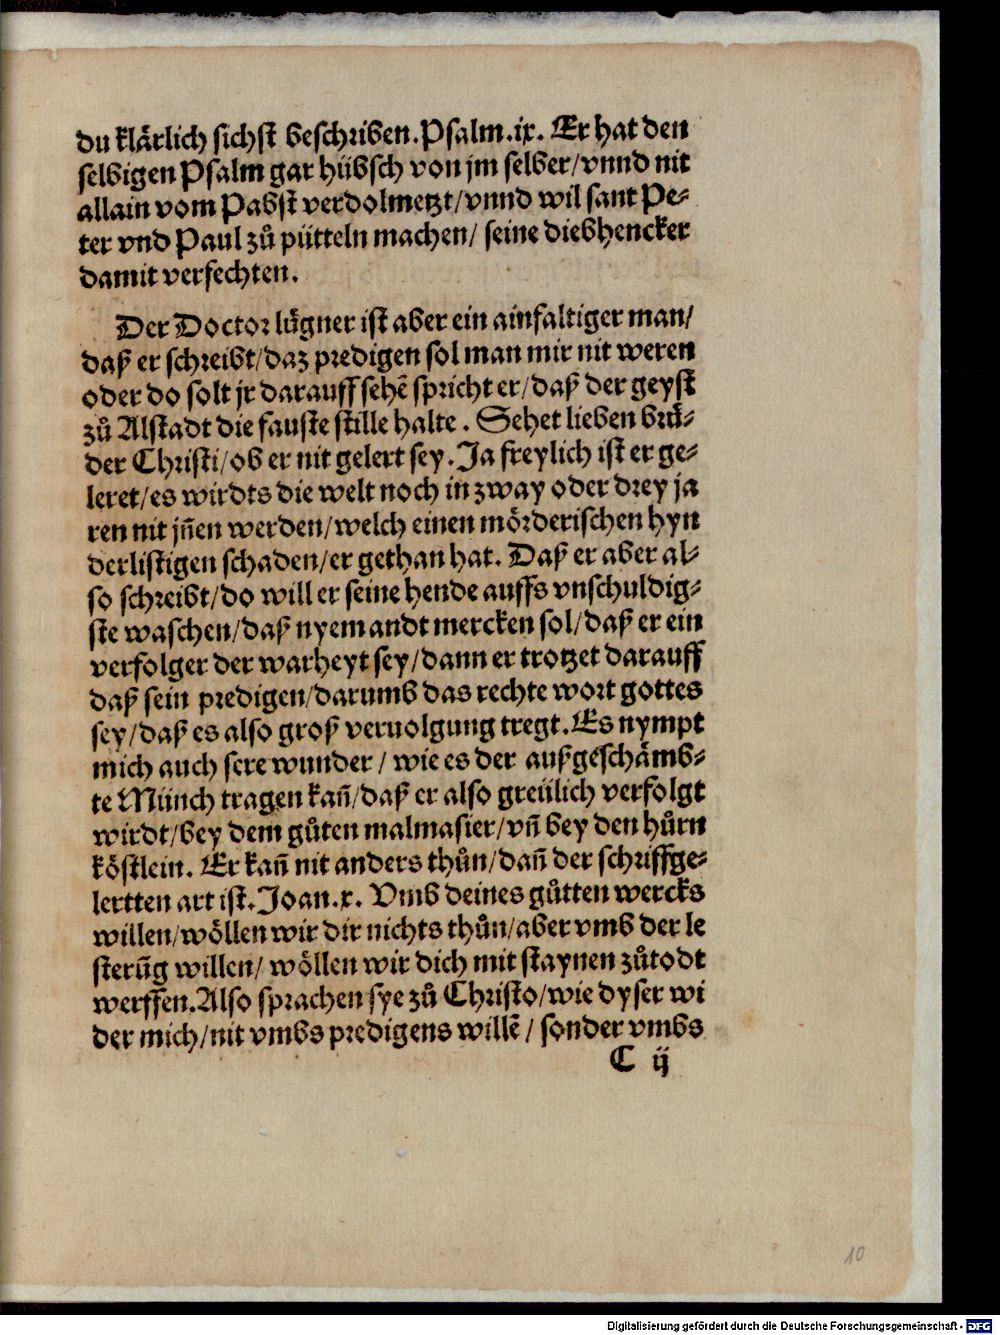 du klärlich sichst beschriben. Psalm. ix. Er hat den
selbigen Psalm gar hübsch von jm selber/ vnnd nit
allain vom Pabst verdolmetzt/ vnnd wil sant Pe-
ter vnd Paul zů pütteln machen/ seine diebhencker
damit verfechten.
Der Doctor lügner ist aber ein ainfaltiger man/
daß er schreibt/ daz predigen sol man mir nit weren
oder do solt jr darauff sehē spricht er/ daß der geyst
zů Alstadt die fauste stille halte. Sehet lieben brů-
der Christi/ ob er nit gelert sey. Ja freylich ist er ge-
leret/ es wirdts die welt noch in zway oder drey ja
ren nit jn̄en werden/ welch einen mörderischen hyn
derlistigen schaden/ er gethan hat. Daß er aber al-
so schreibt/ do will er seine hende auffs vnschuldig-
ste waschen/ daß nyemandt mercken sol/ daß er ein
verfolger der warheyt sey/ dann er trotzet darauff
daß sein predigen/ darumb das rechte wort gottes
sey/ daß es also groß veruolgung tregt. Es nympt
mich auch sere wunder/ wie es der außgeschämb-
te Münch tragen kan̄/ daß er also greülich verfolgt
wirdt/ bey dem gůten malmasier/ vn̄ bey den hůrn
köstlein. Er kan̄ nit anders thůn/ dan̄ der schriffge-
lertten art ist. Joan. x. Vmb deines gůtten wercks
willen/ wöllen wir dir nichts thůn/ aber vmb der le
sterūg willen/ wöllen wir dich mit staynen zůtodt
werffen. Also sprachen sye zů Christo/ wie dyser wi
der mich/ nit vmbs predigens willē/ sonder vmbs
C ij
10
Digitalisierung gefördert durch die Deutsche Forschungsgemeinschaft - DFG